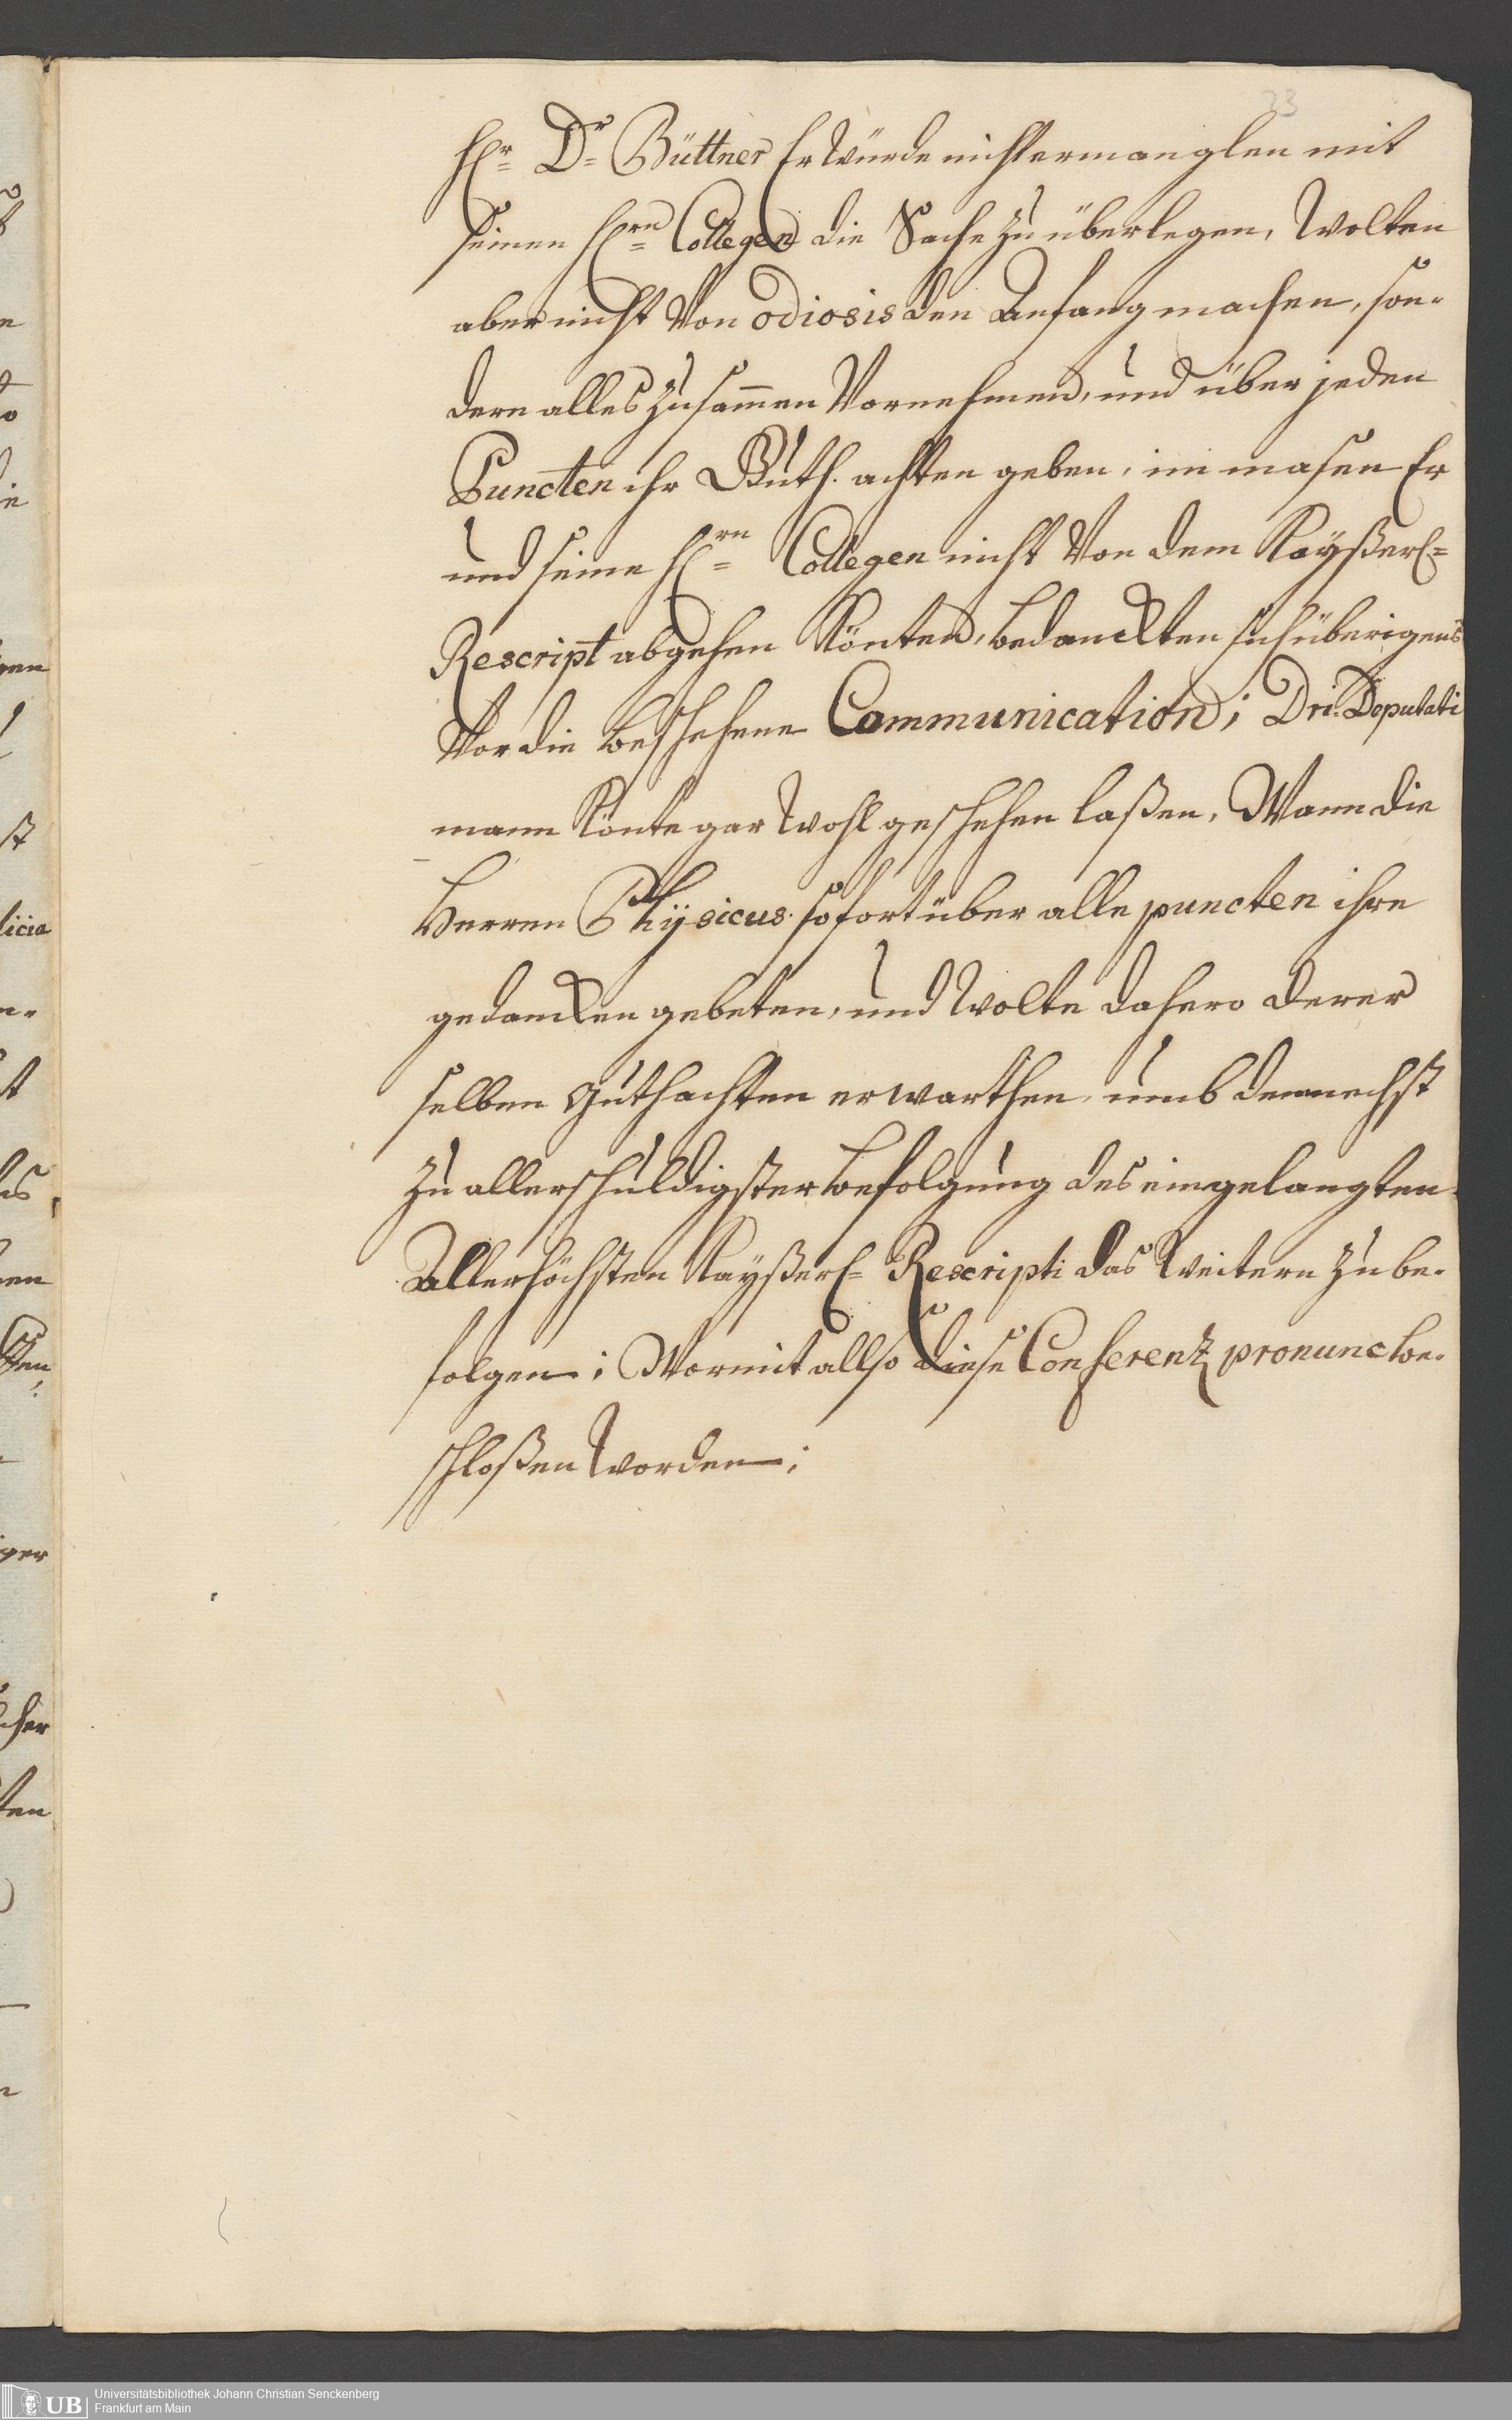 33
Hr. Dr. Büttner Er würde nicht ermanglen mit
seinen Hrn. Collegen die Sache zu überlegen, wolten
aber nicht von odiosis den Anfang machen, son-
dern alles zusammen vornehmen, und über jeden
Puncten ihr Guth. achten geben, im masen Er
und seine Hrn. Collegen nicht von dem Kayßerl.
Rescript abgehen könten, bedanckten sich überigens
vor die beschehene Communication; Dni. Deputati
mann könte gar wohl geschehen laßen, wann die
Herren Physicus. sofort über alle puncten ihre
gedancken gebeten, und wolte dahero derer
selben guthachten erwarthen, umb demnechst
zu allerschuldigster befolgung des eingelangten
Allerhöchsten Kayßerl. Rescripti das weitere zu be-
folgen; Wormit allso diese Conferentz pro nunc be-
schloßen worden;
Universitätsbibliothek Johann Christian Senckenberg
Frankfurt am Main
UB